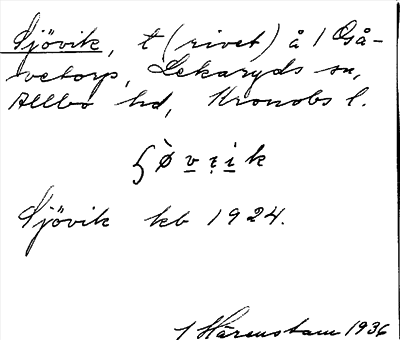 Sjövik, t (rivet) å 1 Gå-
vetorp, Lekaryds sn,
Allbo hd, Kronobs l.
ʃø̀vịik
Sjövik kb 1924.
1 Härenstam 1936